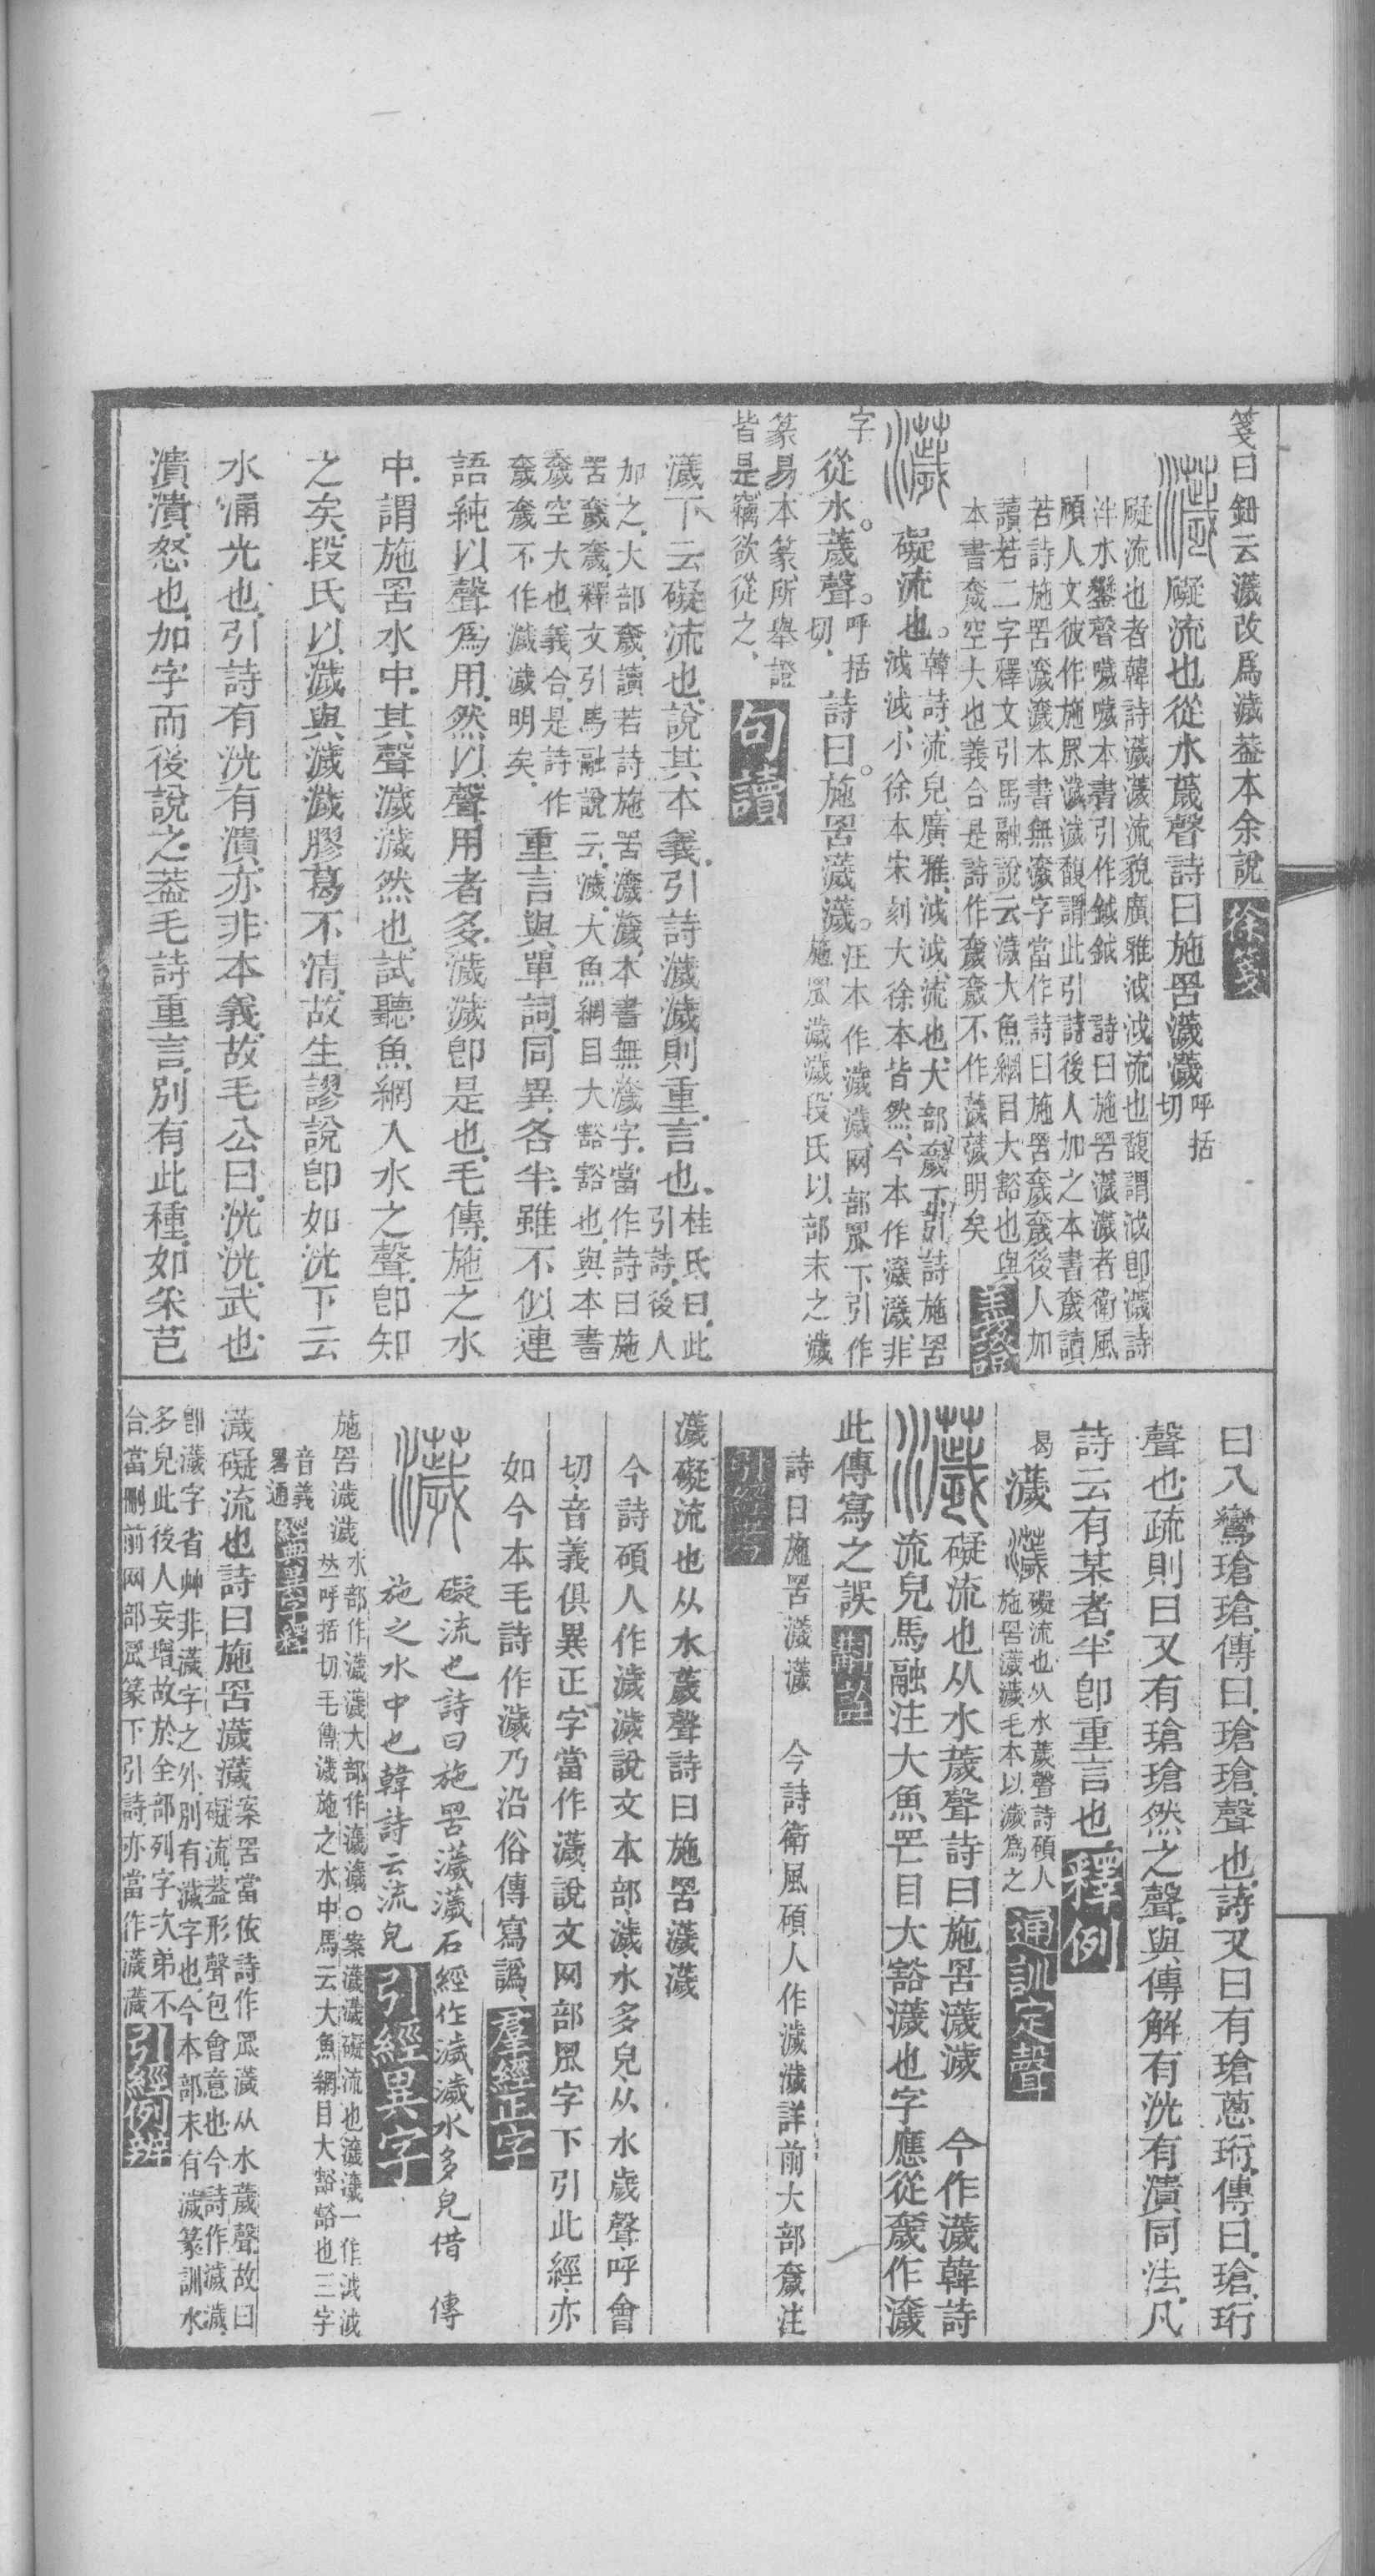 箋曰鈕云濊改爲濊葢本余說 徐箋
礙流也從水薉聲詩曰施罟濊濊呼括切
礙流也者韓詩濊濊流貌廣雅泧泧流也馥謂泧卽濊詩
泮水鑾聲噦噦本書引作鉞鉞 詩曰施罟濊濊者衛風
碩人文彼作施罛濊濊馥謂此引詩後人加之本書奯讀
若詩施罟濊濊本書無濊字當作詩曰施罟奯奯後人加
讀若二字釋文引馬融說云濊大魚網目大豁也與
本書奯空大也義合是詩作奯奯不作濊濊明矣 義證
礙流也。韓詩流皃廣雅泧泧流也大部奯下引詩施罟
泧泧小徐本宋刻大徐本皆然今本作濊濊非
字
從水。薉聲。呼括切 詩曰。施罟濊濊。汪本作濊濊网部罛下引作
施罛濊濊段氏以部末之濊
篆易本篆所舉證
皆是竊欲從之 句讀
濊下云礙流也說其本義引詩濊濊則重言也桂氏曰此
引詩後人
加之大部奯讀若詩施罟濊濊本書無濊字當作詩曰施
罟奯奯釋文引馬融說云濊大魚網目大豁豁也與本書
奯空大也義合是詩作
奯奯不作濊濊明矣 重言與單詞同異各半雖不似連
語純以聲爲用然以聲用者多濊濊卽是也毛傳施之水
中謂施罟水中其聲濊濊然也試聽魚網入水之聲卽知
之矣段氏以濊與濊濊膠葛不清故生謬說卽如洸下云
水涌光也引詩有洸有潰亦非本義故毛公曰洸洸武也
潰潰怒也加字而後說之葢毛詩重言別有此種如采芑
曰八鸞瑲瑲傳曰瑲瑲聲也詩又曰有瑲蔥珩傳曰瑲珩
聲也疏則曰又有瑲瑲然之聲與傳解有洸有潰同法凡
詩云有某者半卽重言也 釋例
曷 濊 礙流也从水薉聲詩碩人
施罟濊濊毛本以濊爲之 通訓定聲
礙流也从水薉聲詩曰施罟濊濊 今作濊韓詩
流皃馬融注大魚罔目大豁濊也字應從奯作濊
此傳寫之誤
詩曰施罟濊濊 今詩衛風碩人作濊濊詳前大部奯注
引經考
濊礙流也从水薉聲詩曰施罟濊濊
今詩碩人作濊濊說文本部濊水多皃从水歲聲呼會
切音義俱異正字當作濊說文网部罛字下引此經亦
如今本毛詩作濊乃沿俗傳寫譌 羣經正字
礙流也詩曰施罟濊濊石經作濊濊水多皃借 傳
施之水中也韓詩云流皃 引經異字
施罟濊濊 水部作濊濊大部作濊濊○案濊濊礙流也濊濊一作泧泧
𠀤呼括切毛傳濊施之水中馬云大魚網目大豁豁也三字
音義
畧通
濊礙流也詩曰施罟濊濊案罟當依詩作罛濊从水薉聲故曰
礙流葢形聲包會意也今詩作濊濊
卽濊字省艸非濊字之外別有濊字也今本部末有濊篆訓水
多皃此後人妄增故於全部列字次弟不
合當刪前网部罛篆下引詩亦當作濊濊 引經例辨